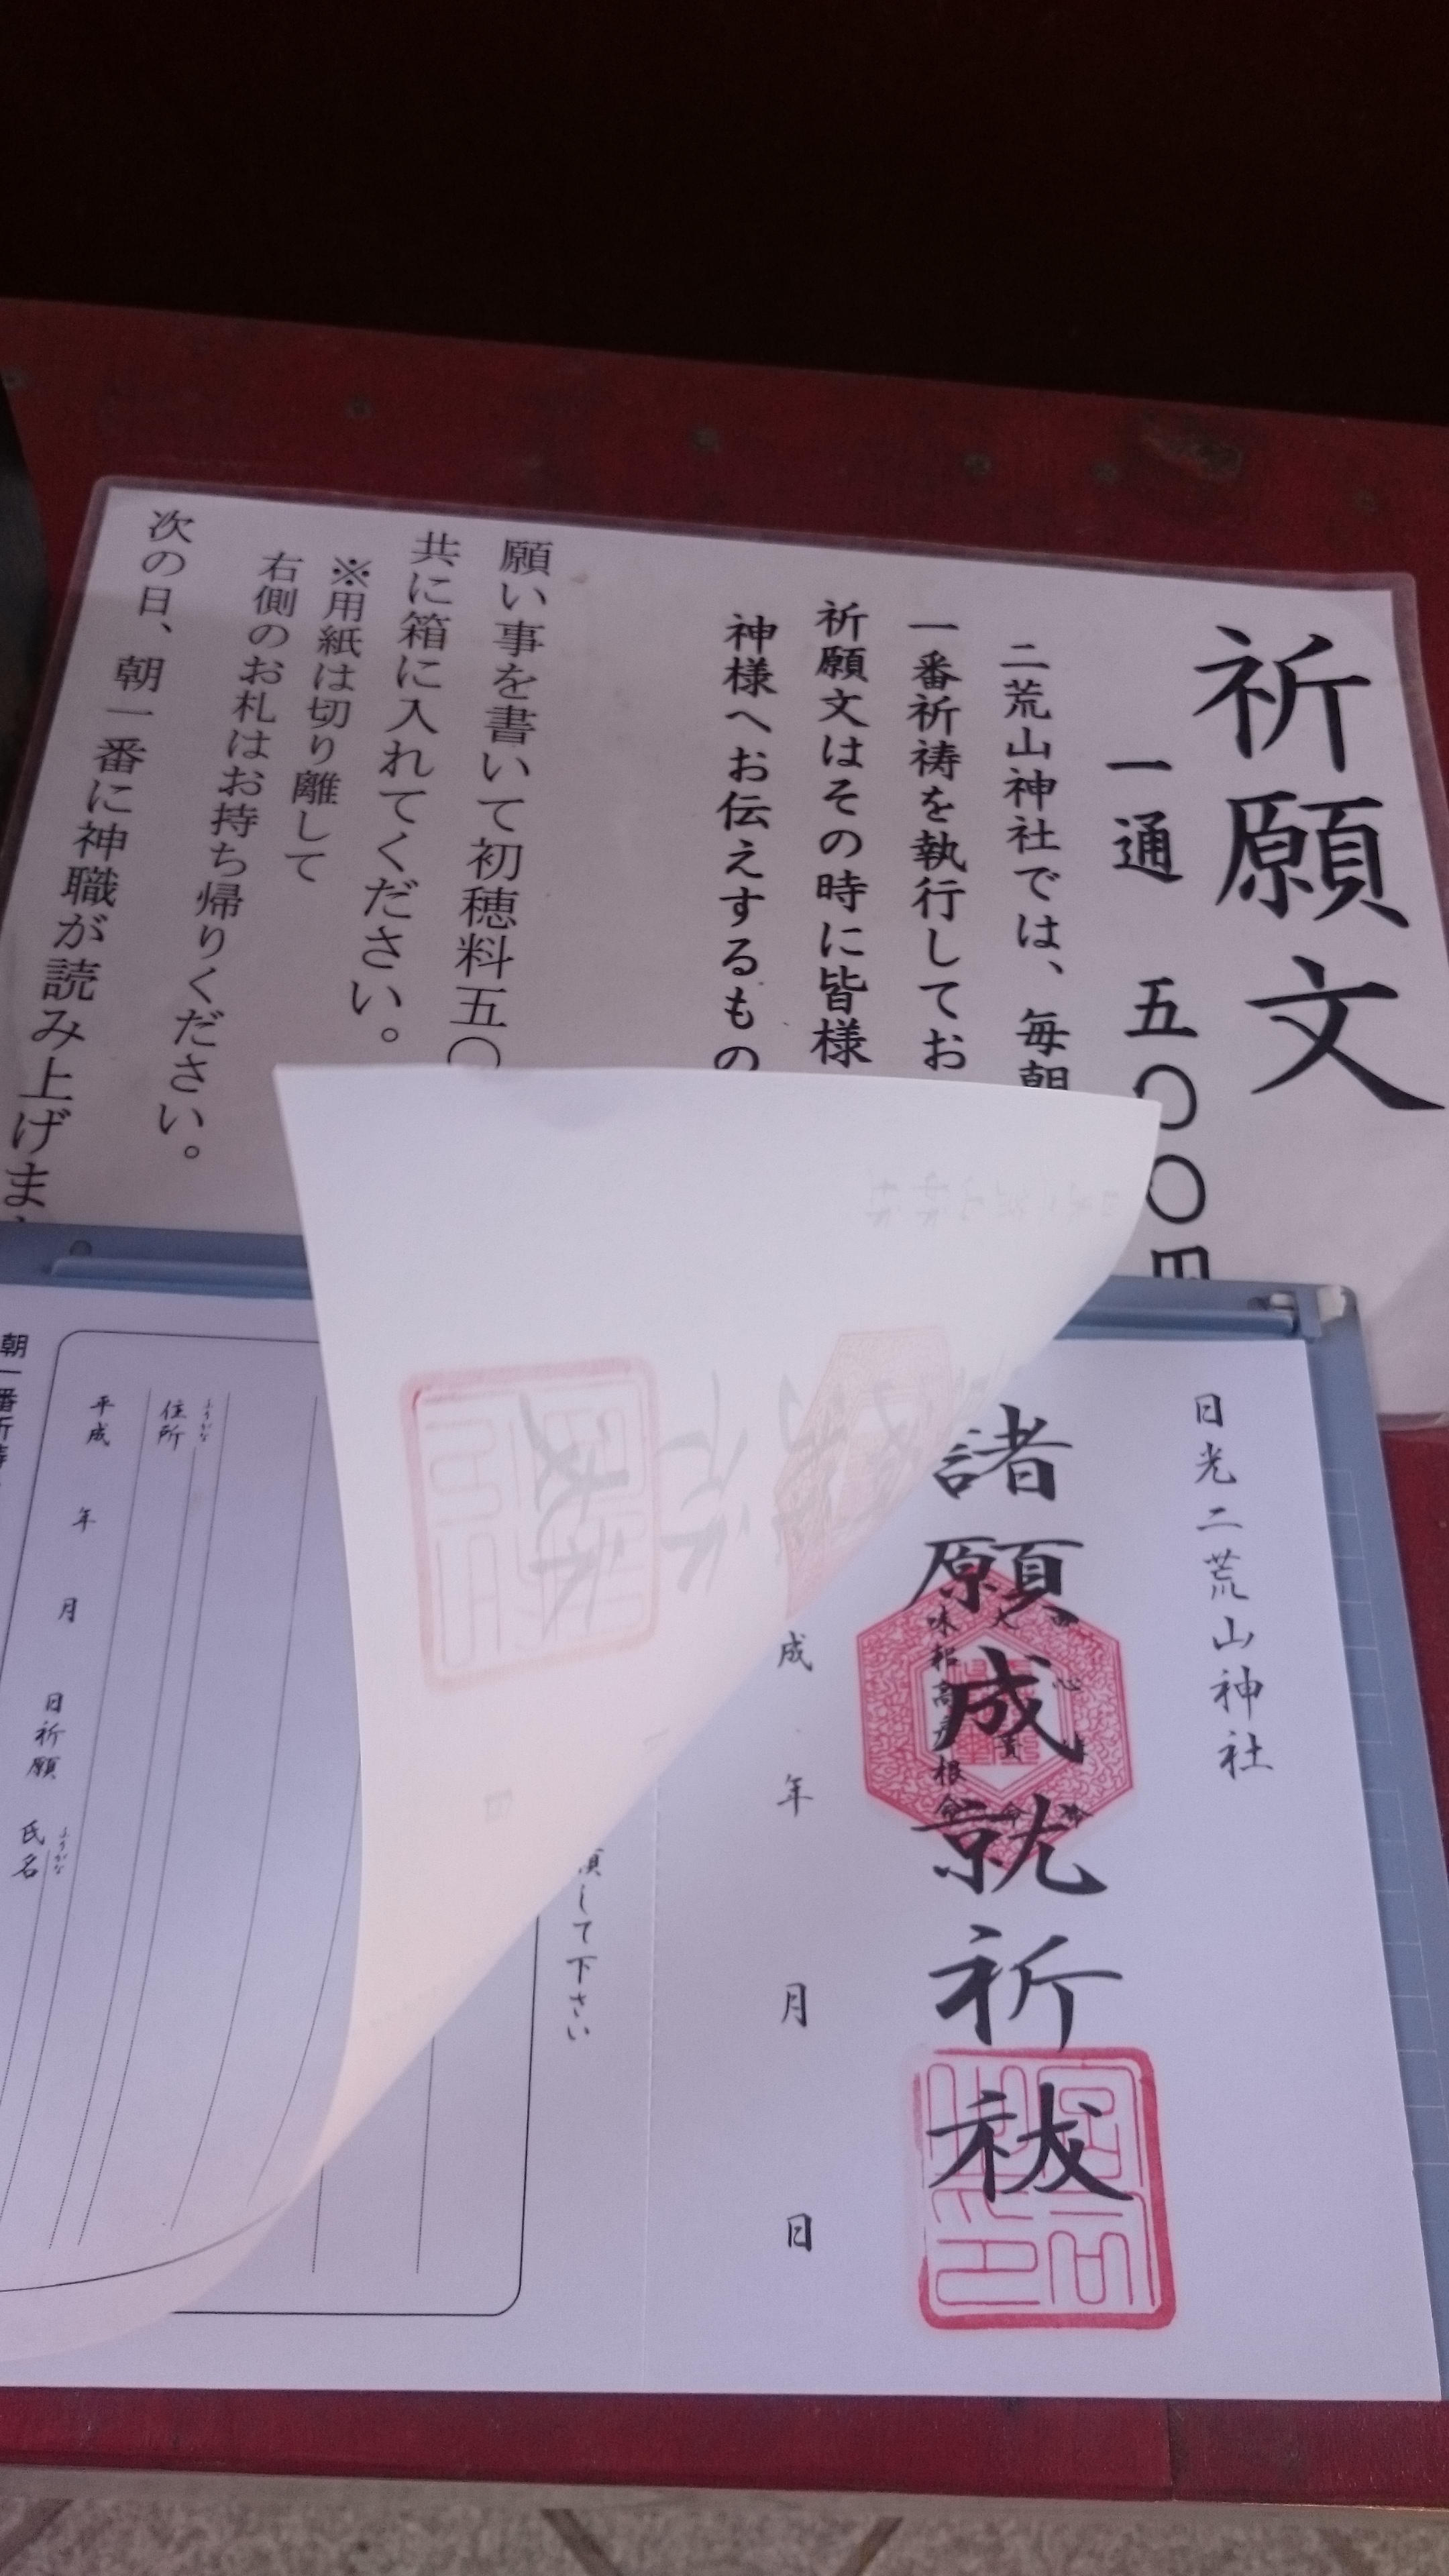 祈願文
一通 五〇〇円
二荒山神社では、毎朝
一番祈祷を執行してお
祈願文はその時に皆様
神様へお伝えするもの
願い事を書いて初穂料五〇
共に箱に入れてください。
※用紙は切り離して
右側のお札はお持ち帰りください。
次の日、朝一番に神職が読み上げま
日光二荒山神社
諸願成就祈祓
成 年 月 日
して下さい
ふりがな
住所
平成 年 月 日祈願 氏名
ふりがな
朝一番祈祷